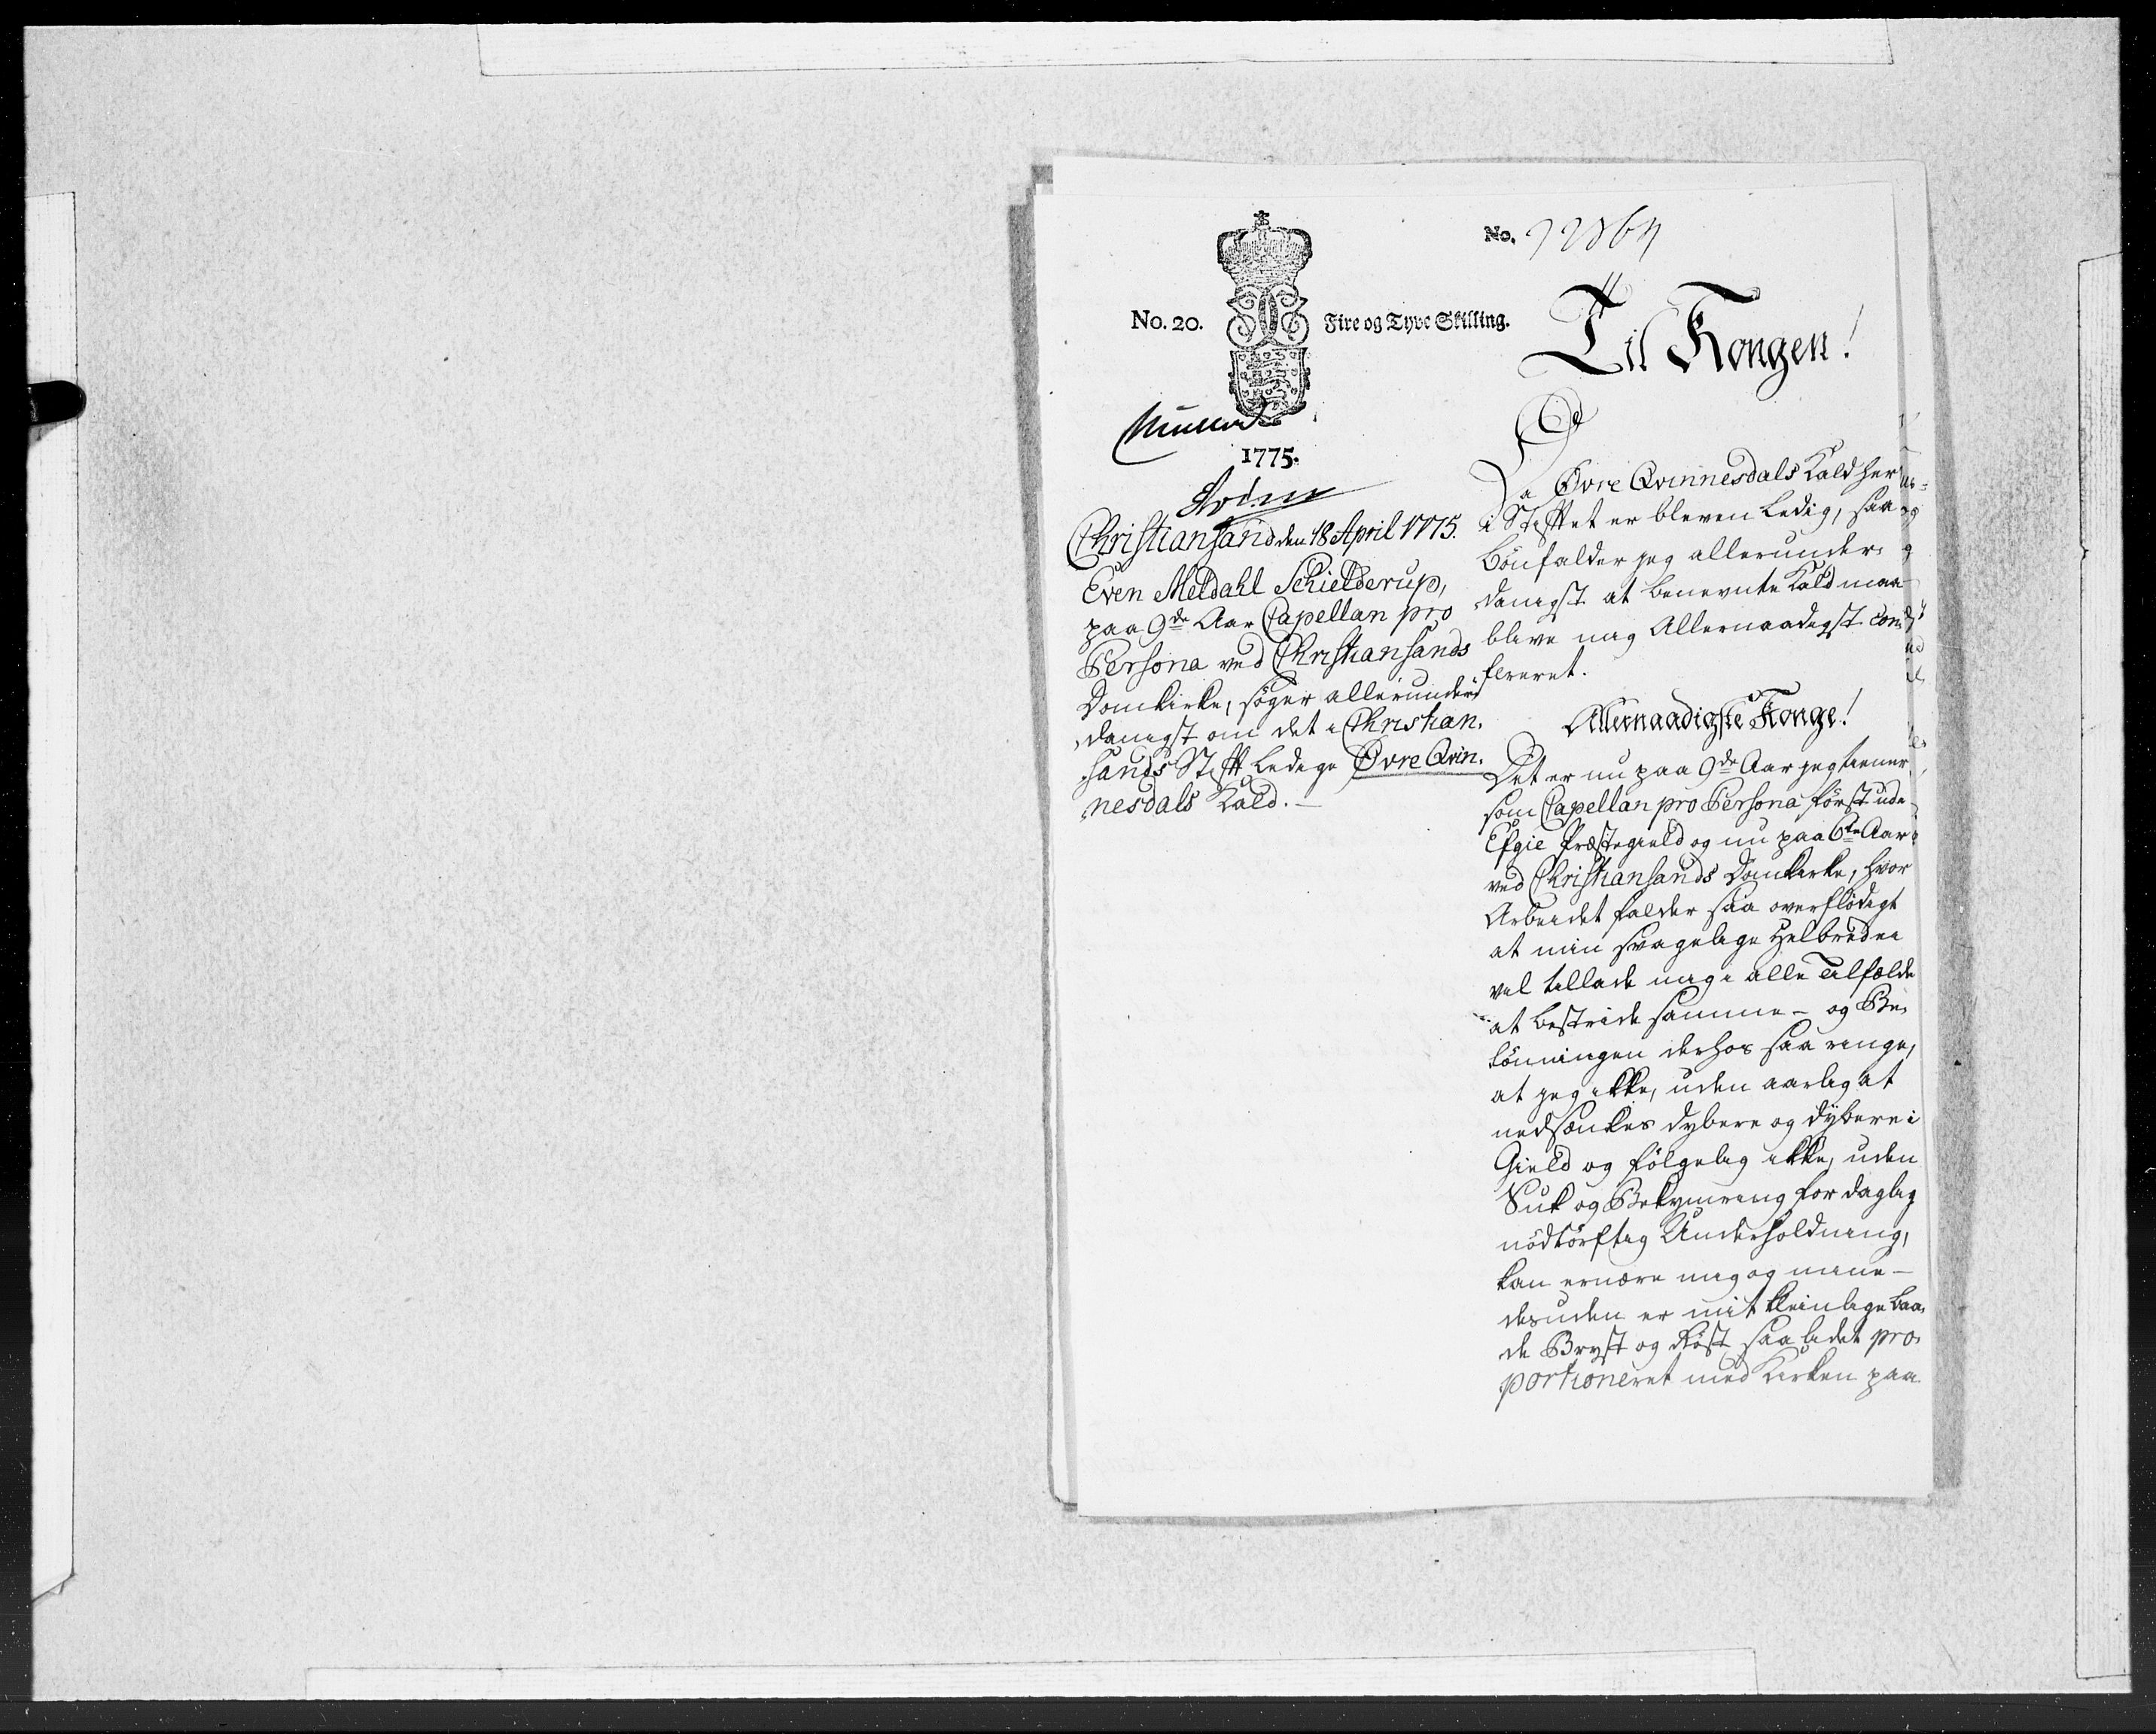 No. 20.
Fire og Tyve Skilling.
1775.
Christiansand den 18 April 1775.
Even Meldahl Schielderup,
paa 9de Aar Capellan pro
Persona ved Christiansands
Domkirke, søger allerunder¬
danigst om det i Christian¬
sands Stift ledige Øvre Qvin¬
nesdals Kald.
No. 92864
Til Kongen!
Da Øvre Qvinnesdals Kald her
i Stiftet er bleven ledig, saa
bönfalder jeg allerunder¬
danigst at benevnte Kald maa
blive mig Allernaadigst con¬
fereret.
Allernaadigste Konge!
Det er nu paa 9de Aar jeg tiener
som Capellan pro Persona först ude
Efgie Præstegield og nu paa 6te Aar
ved Christiansands Domkirke, hvor
Arbeidet falder saa overflödigt
at min svagelige Helbred ei
vel tillade mig i alle Tilfælde
at bestride samme - og Be¬
lönningen derhos saa ringe,
at jeg ikke, uden aarlig at
nedsænkes dybere og dybere i
Gield og fölgelig ikke, uden
Suk og Bekymring for daglig
nödtörftig Underholdning,
kan ernære mig og mine -
desuden er mit kleinlige baa¬
de Bryst og Röst saa lidet pro¬
portioneret med Kirken paa